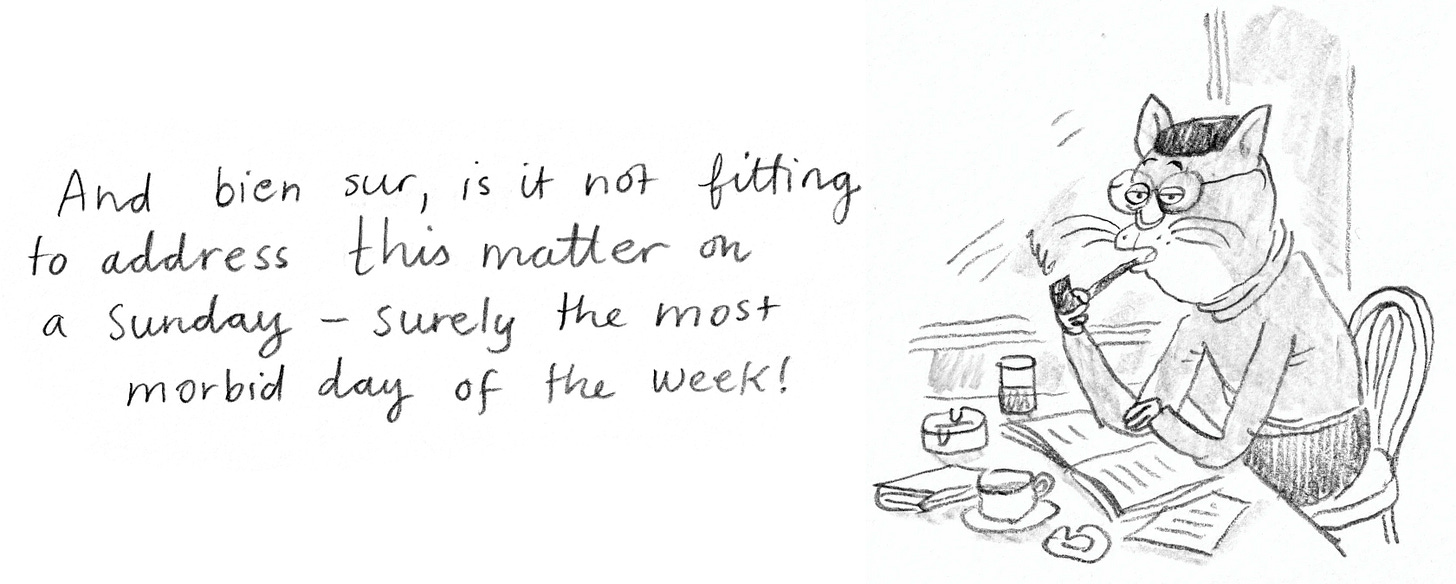 And bien sur, is it not fitting
to address this matter on
a Sunday – surely the most
morbid day of the week!